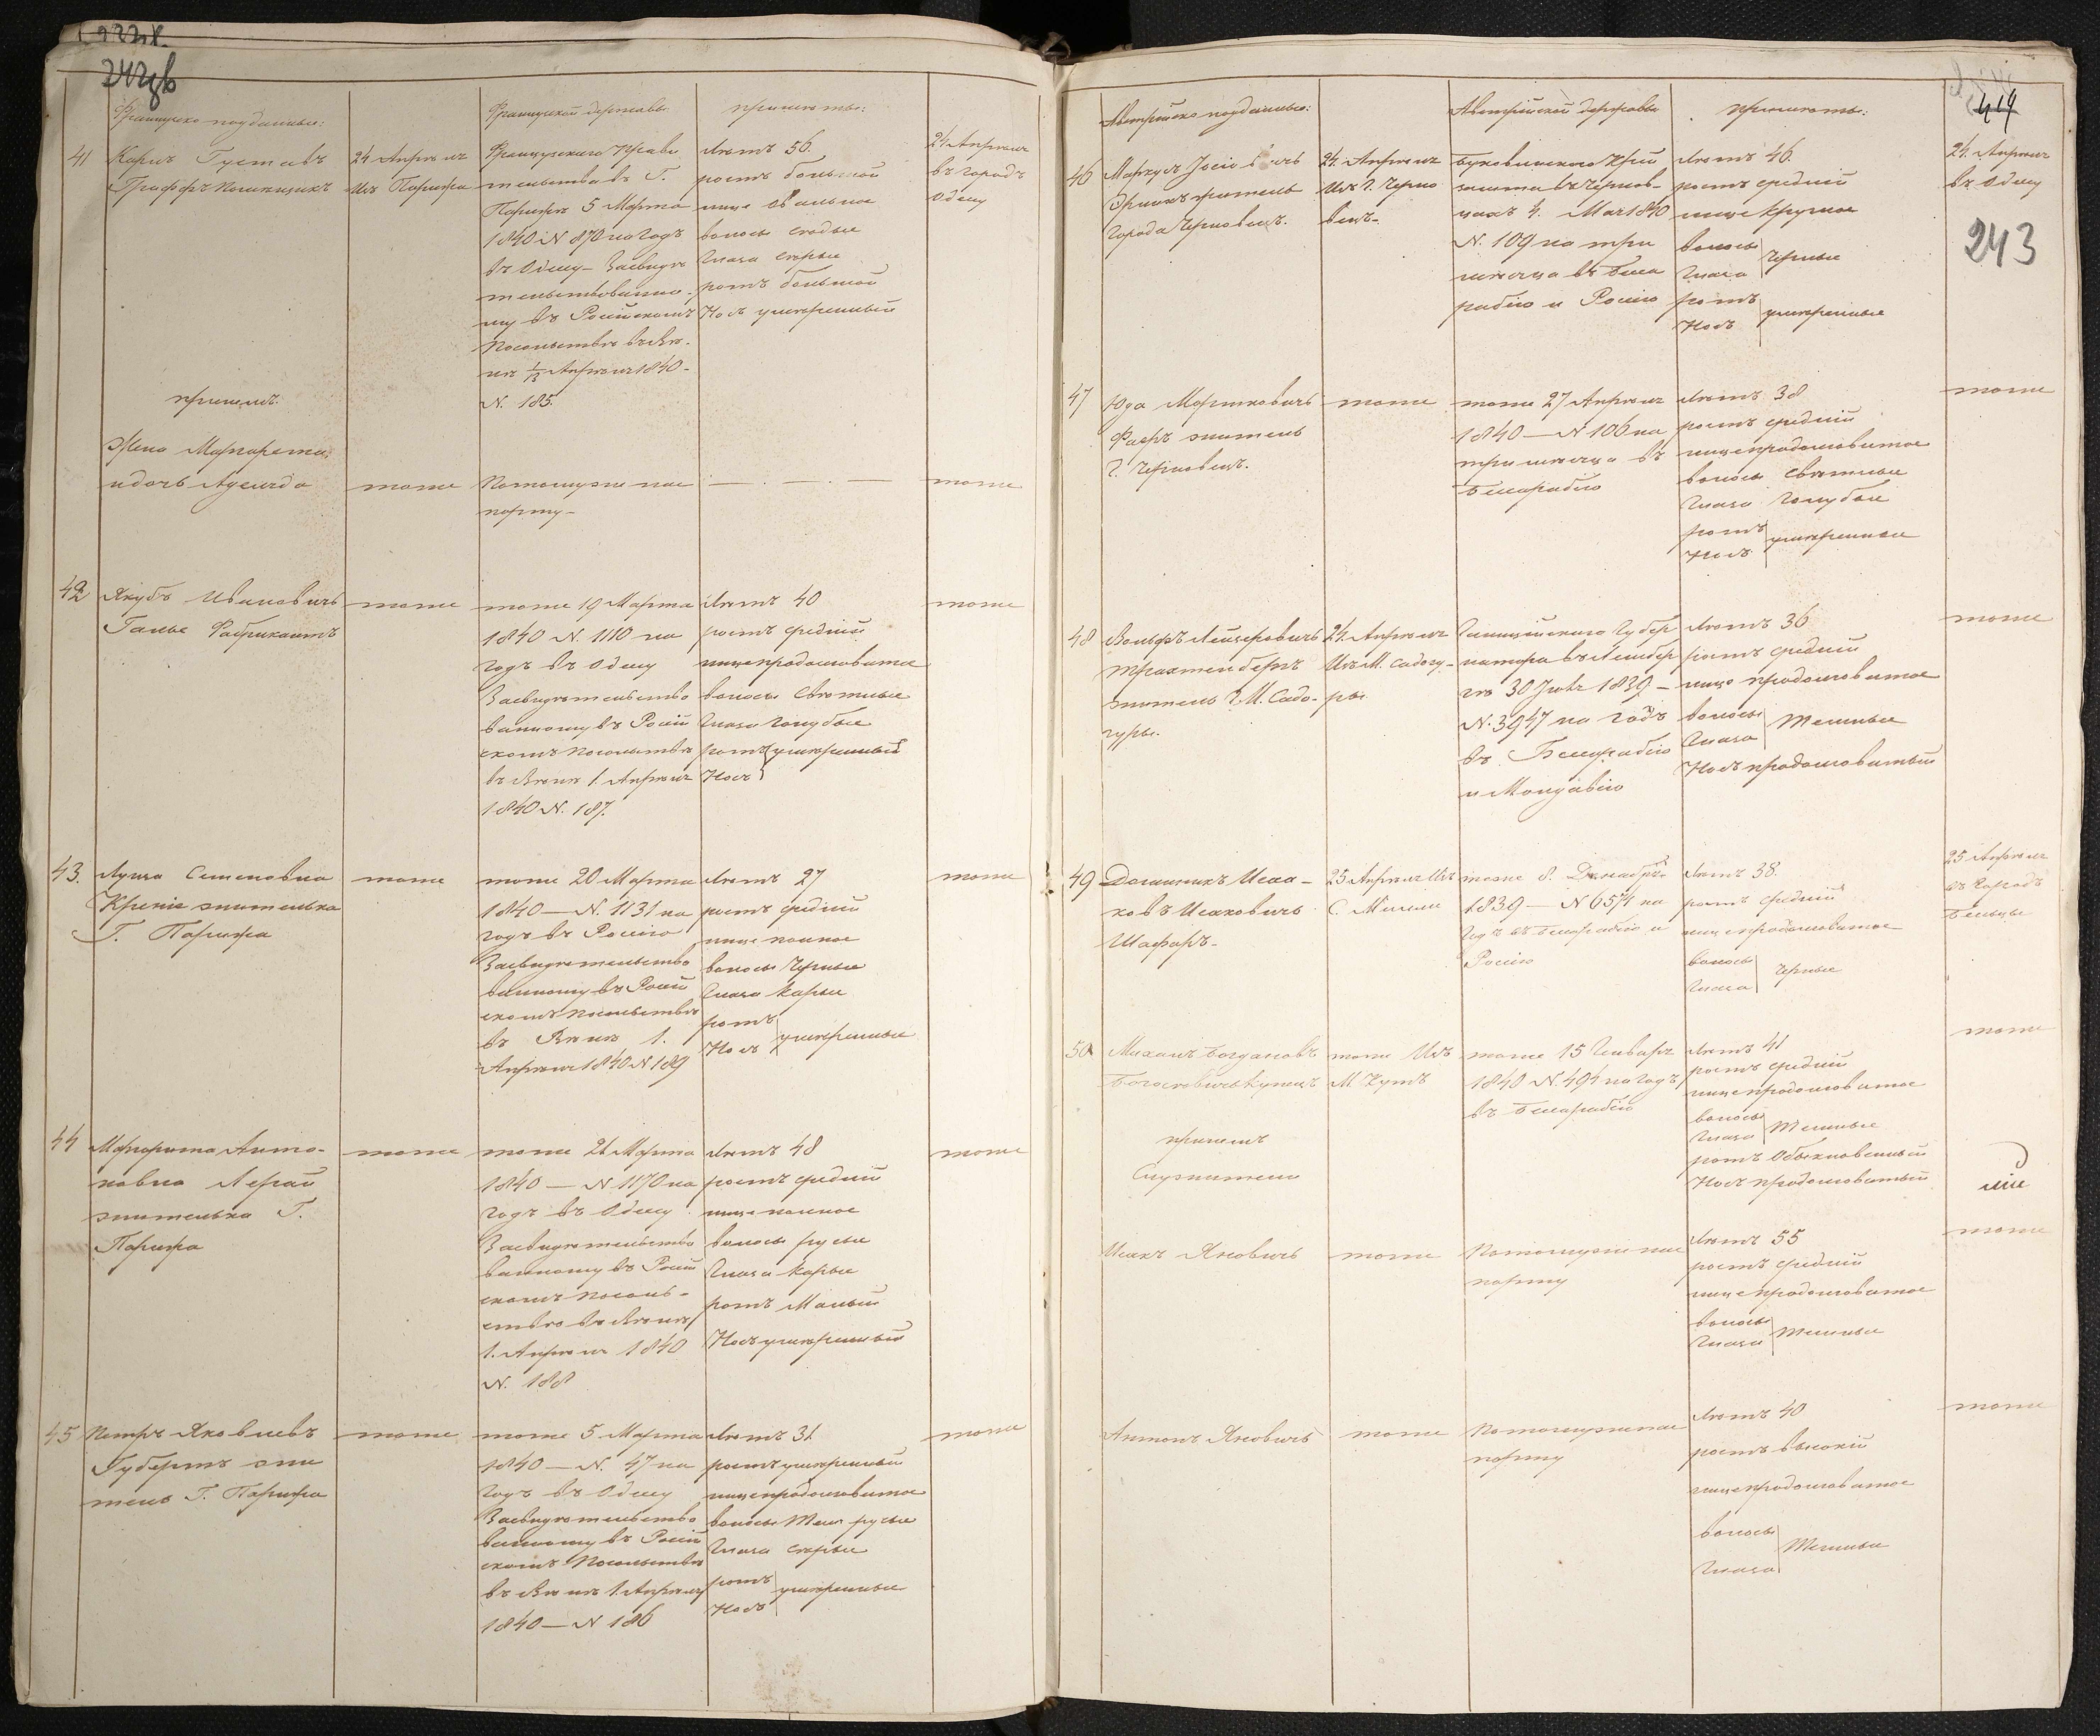 242 об
Французско подданные:
Французской державы
приметы:
41
Карлъ Густавъ
Граффъ
24 Апреля
Изъ Парижа
Французскаго Прави
тельства въ Г.
Париже 5 Марта
1840 N 870 на годъ
въ Одессу – Засвиде
тельствованно-
му въ Россійскомъ
Посольстве въ Ве-
не 1/13 Апреля 1840 –
N. 185.
Летъ 56.
ростъ большой
лице овальное
волосы седые
Глаза серые
ротъ большой
Носъ умеренный
24 Апреля
въ городъ
Одессу
причемъ
Жена Маргарета,
и дочь Аделаида
тоже
Потомуже пас
порту –
тоже
42
Якубъ Ивановичь
Галье Фабрикантъ
тоже
тоже 19 Марта
1840 N. 1110 на
годъ въ Одессу
Засвидетельство
ванному въ Россій
скомъ посольстве
въ Вене 1. Апреля
1840 N. 187.
Летъ 40
ростъ средній
лице продолговатое
волосы Светлые
Глаза голубые
ротъ умеренный
Носъ
тоже
43.
Луиза Семеновна
Крепіе жителька
Г. Парижа
тоже
тоже 20 Марта
1840 — N. 1131 на
годъ въ Россію
Засвидетельство
ванному въ Россій
скомъ посольстве
въ Вене 1.
Апреля 1840 N 189
Летъ 27
ростъ средній
лице полное
волосы Черные
Глаза Карые
ротъ
Носъ умеренные
тоже
44
Маргарита Анто-
новна Лерай
жителька Г.
Парижа
тоже
тоже 21 Марта
1840 — N 1170 на
годъ въ Одессу
Засвидетельство
ванному въ Россій
скомъ посоль-
стве въ Вене
1. Апреля 1840
N. 188
Летъ 48
ростъ средній
лице полное
волосы русые
Глаза Карые
ротъ Малый
Носъ умеренный
тоже
45
Петръ Яковлевъ
Губертъ жи
тель Г. Парижа
тоже
тоже 5 Марта
1840 — N. 47 на
годъ въ Одессу
Засвидетельство
ванному въ Россій
скомъ Посольстве
въ Вене 1. Апреля
1840 — N 186
Летъ 31
ростъ умеренный
лице продолговатое
волосы Тем русые
Глаза серые
ротъ
Носъ умеренные
тоже
414
243
Австрійско подданные:
Австрійской державы
приметы:
46
Маркусъ
житель
города Черновецъ.
24. Апреля
Изъ Г. Черно
вецъ –
Буковинскаго Крей
замта въ Чернов-
цахъ 4. Mar 1840
N. 109 на три
месяца въ Бесса
рабію и Россію
Летъ 46.
ростъ средній
лице Круглое
волосы
Глаза Черные
ротъ
Носъ умеренные
24. Апреля
въ Одессу
47
Юда Марковичь
Фаеръ житель
Г. Черновецъ.
тоже
тоже 27 Апреля
1840 — N 106 на
три месяца въ
Бессарабію
Летъ 38
ростъ средній
лице продолговатое
волосы Светлые
Глаза голубые
ротъ
Носъ умеренные
тоже
48
Вольфъ Лейзеровичь
Трахтенбергъ
житель М. Садо-
гуры.
24. Апреля
Изъ М. Садогу-
ры
Галиційскаго Губер
натора въ Лембер
ге 30 1839 –
N. 3947 на годъ
въ Бессарабію
и Молдавію
Летъ 36
ростъ средній
лице продолговатое
волосы
Глаза Темные
Носъ продолговатый
тоже
49
Доминикъ Исаа-
ковъ Исаковичь
Шафаръ –
25 Апреля Изъ
С.
тоже 8. Декабря
1839 — N 6574 на
Годъ въ Бессарабію и
Россію
Летъ 38.
ростъ средній
лице продолговатое
волосы
Глаза Черные
25 Апреля
въ Городъ
Бельцы
50
Михаилъ Богдановъ
Богосевичь Купецъ
тоже Изъ
М Кутъ
тоже 15 Генваря
1840 N. 494 на годъ
въ Бессарабію
Летъ 41
ростъ средній
лице продолговатое
волосы
Глаза Темные
ротъ Обыкновенный
Носъ продолговатый
тоже
причемъ
Служители
Исакъ Яновичь
тоже
Потомуже пас
порту
Летъ 55
ростъ средній
лице продолговатое
волосы
Глаза Темные
тоже
Антонъ Яновичь
тоже
Потомуже пас
порту
Летъ 40
ростъ высокій
лице продолговатое
волосы
Глаза Темные
тоже